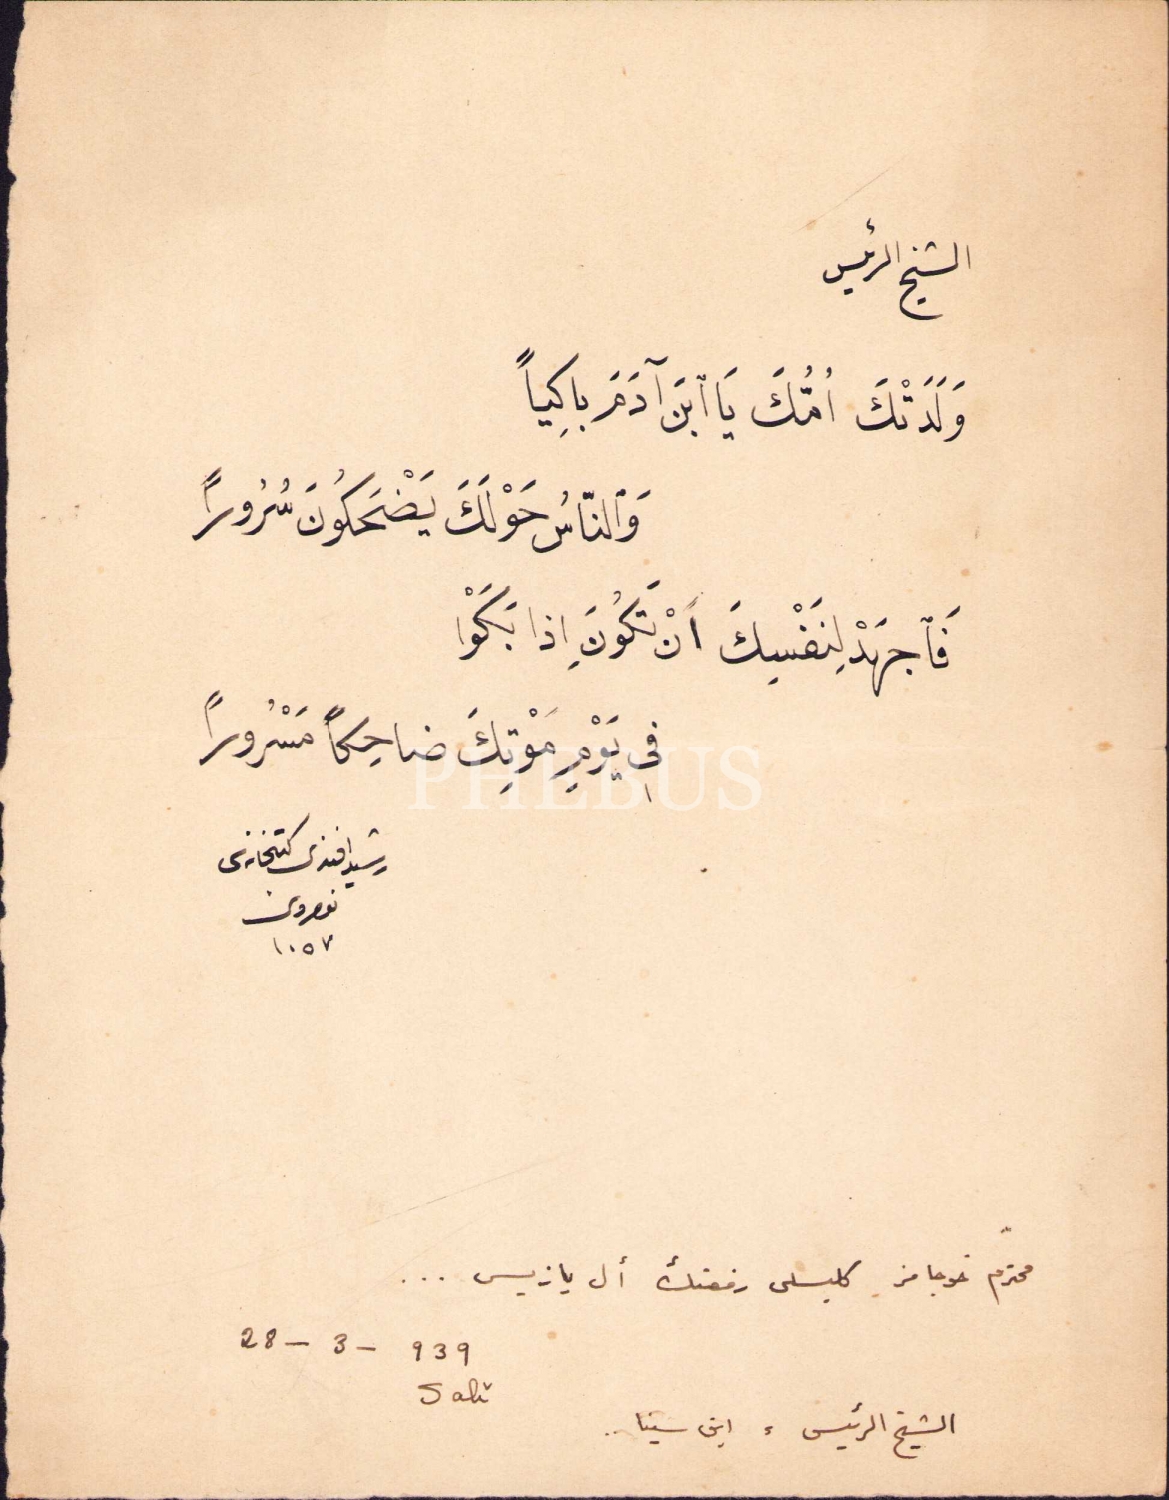 الشيخ الرئيس
وَلَدَتْكَ اُمُّكَ يَا ٱبْنَ آدَمَ باكِياً
وَٱلنّاسُ حَوْلَكَ يَضْحَكُونَ سُرُوراً
فَٱجهَدْ لِنَفْسِكَ أَنْ تَكُونَ اِذا بَكَوْا
فِى يَوْمِ مَوْتِكَ ضاحِكاً مَسْرُوراً
رشيد افندى كتبخانه سى
نومرو
١٠٥٧
PHEBUS
محترم خوجامز كليسلى رفعتك أل يازيسى ...
28 - 3 - 939
الشيخ الرئيس ، ابن سينا ..